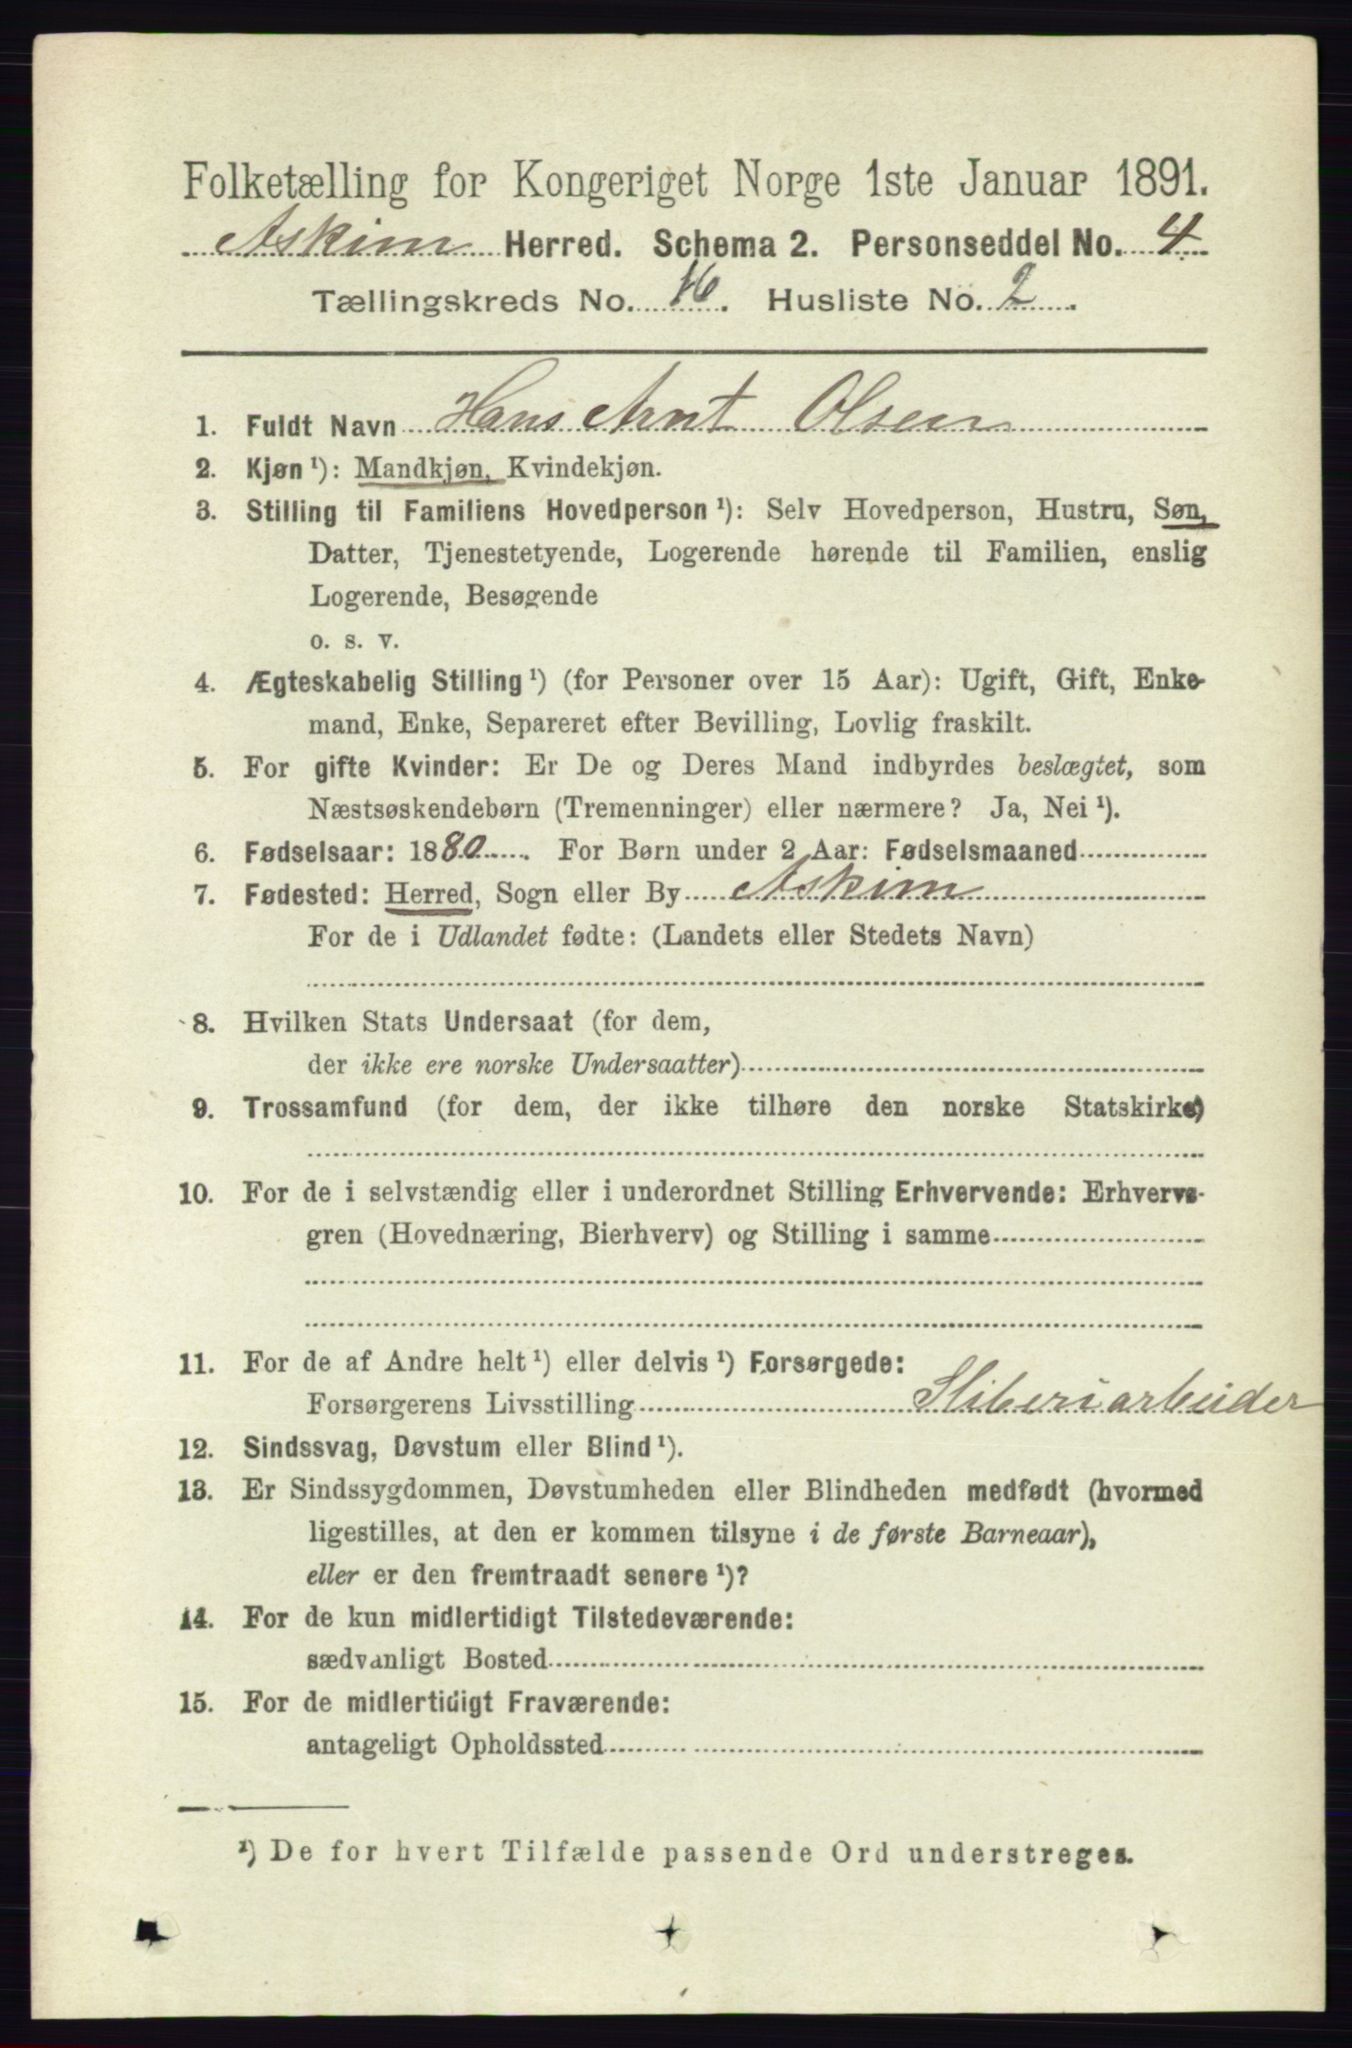 Folketælling for Kongeriget Norge 1ste Januar 1891.
Askim Herred. Schema 2. Personseddel No. 4
Tællingskreds No. 16. Husliste No. 2.
1. Fuldt Navn Hans Arnt Olsen
2. Kjøn ¹): Mandkjøn, Kvindekjøn.
3. Stilling til Familiens Hovedperson ¹): Selv Hovedperson, Hustru, Søn,
Datter, Tjenestetyende, Logerende hørende til Familien, enslig
Logerende, Besøgende
o. s. v.
4. Ægteskabelig Stilling ¹) (for Personer over 15 Aar): Ugift, Gift, Enke-
mand, Enke, Separeret efter Bevilling, Lovlig fraskilt.
5. For gifte Kvinder: Er De og Deres Mand indbyrdes beslægtet, som
Næstsøskendebørn (Tremenninger) eller nærmere? Ja, Nei ¹).
6. Fødselsaar: 1880. For Børn under 2 Aar: Fødselsmaaned
7. Fødested: Herred, Sogn eller By Askim
For de i Udlandet fødte: (Landets eller Stedets Navn)
8. Hvilken Stats Undersaat (for dem,
der ikke ere norske Undersaatter)
9. Trossamfund (for dem, der ikke tilhøre den norske Statskirke)
10. For de i selvstændig eller i underordnet Stilling Erhvervende: Erhvervs-
gren (Hovednæring, Bierhverv) og Stilling i samme
11. For de af Andre helt ¹) eller delvis ¹) Forsørgede:
Forsørgerens Livsstilling Sliberiarbeider
12. Sindssvag, Døvstum eller Blind ¹).
13. Er Sindssygdommen, Døvstumheden eller Blindheden medfødt (hvormed
ligestilles, at den er kommen tilsyne i de første Barneaar),
eller er den fremtraadt senere ¹)?
14. For de kun midlertidigt Tilstedeværende:
sædvanligt Bosted
15. For de midlertidigt Fraværende:
antageligt Opholdssted
¹) De for hvert Tilfælde passende Ord understreges.